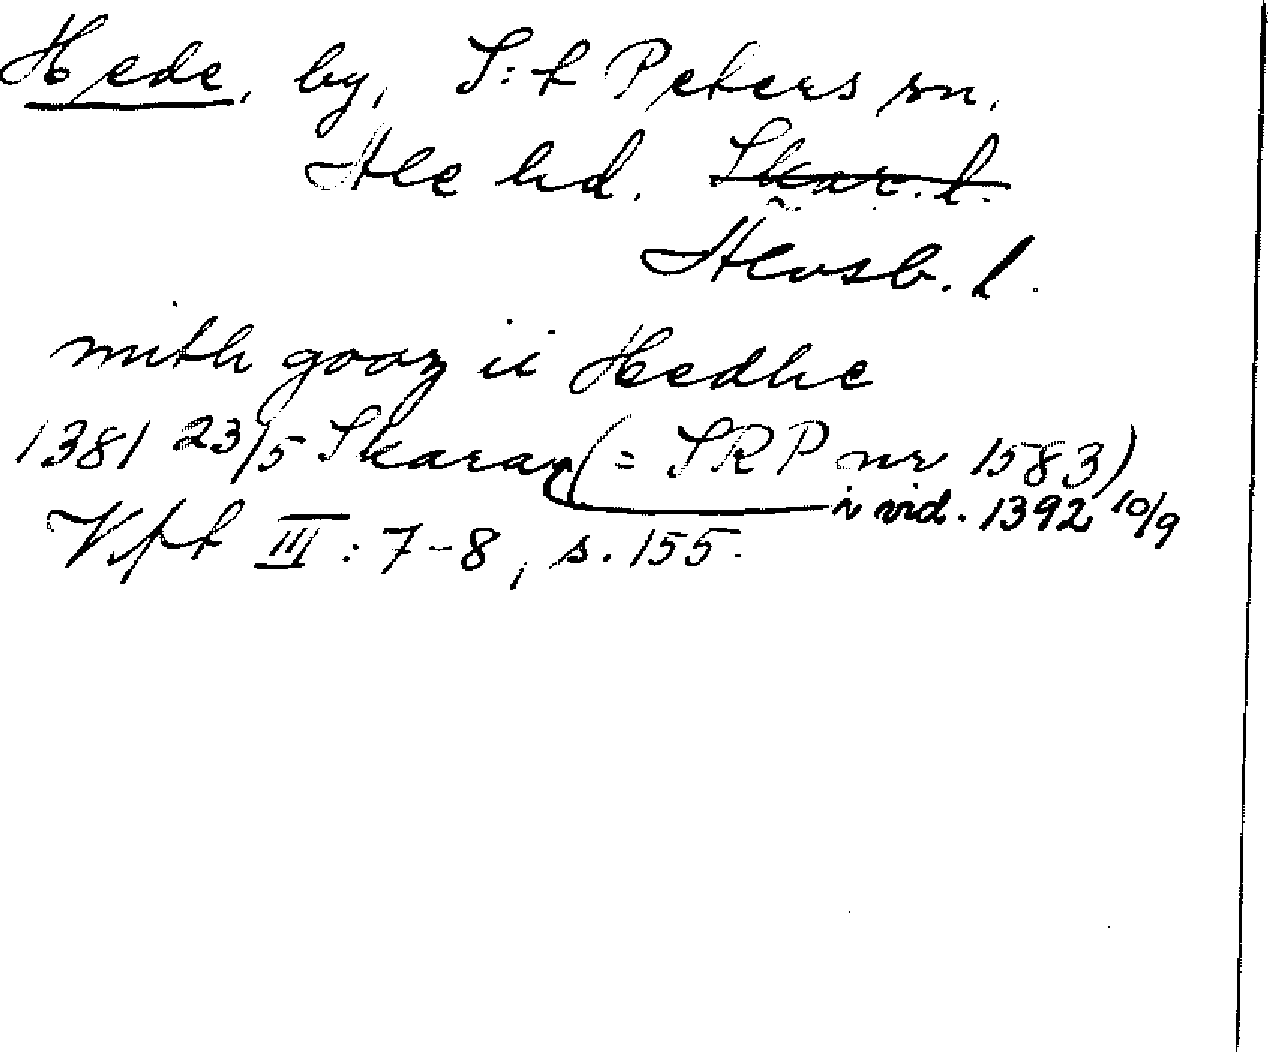 Hede, by, S:t Peters sn.
Ale hd. Skar. l.
Älvsb. l.
mith gooz ii Hedhe
1381 23/5 Skaraz (= SRP nr 1583)
i vid. 1392 10/9
Vfft III: 7-8, s. 155.